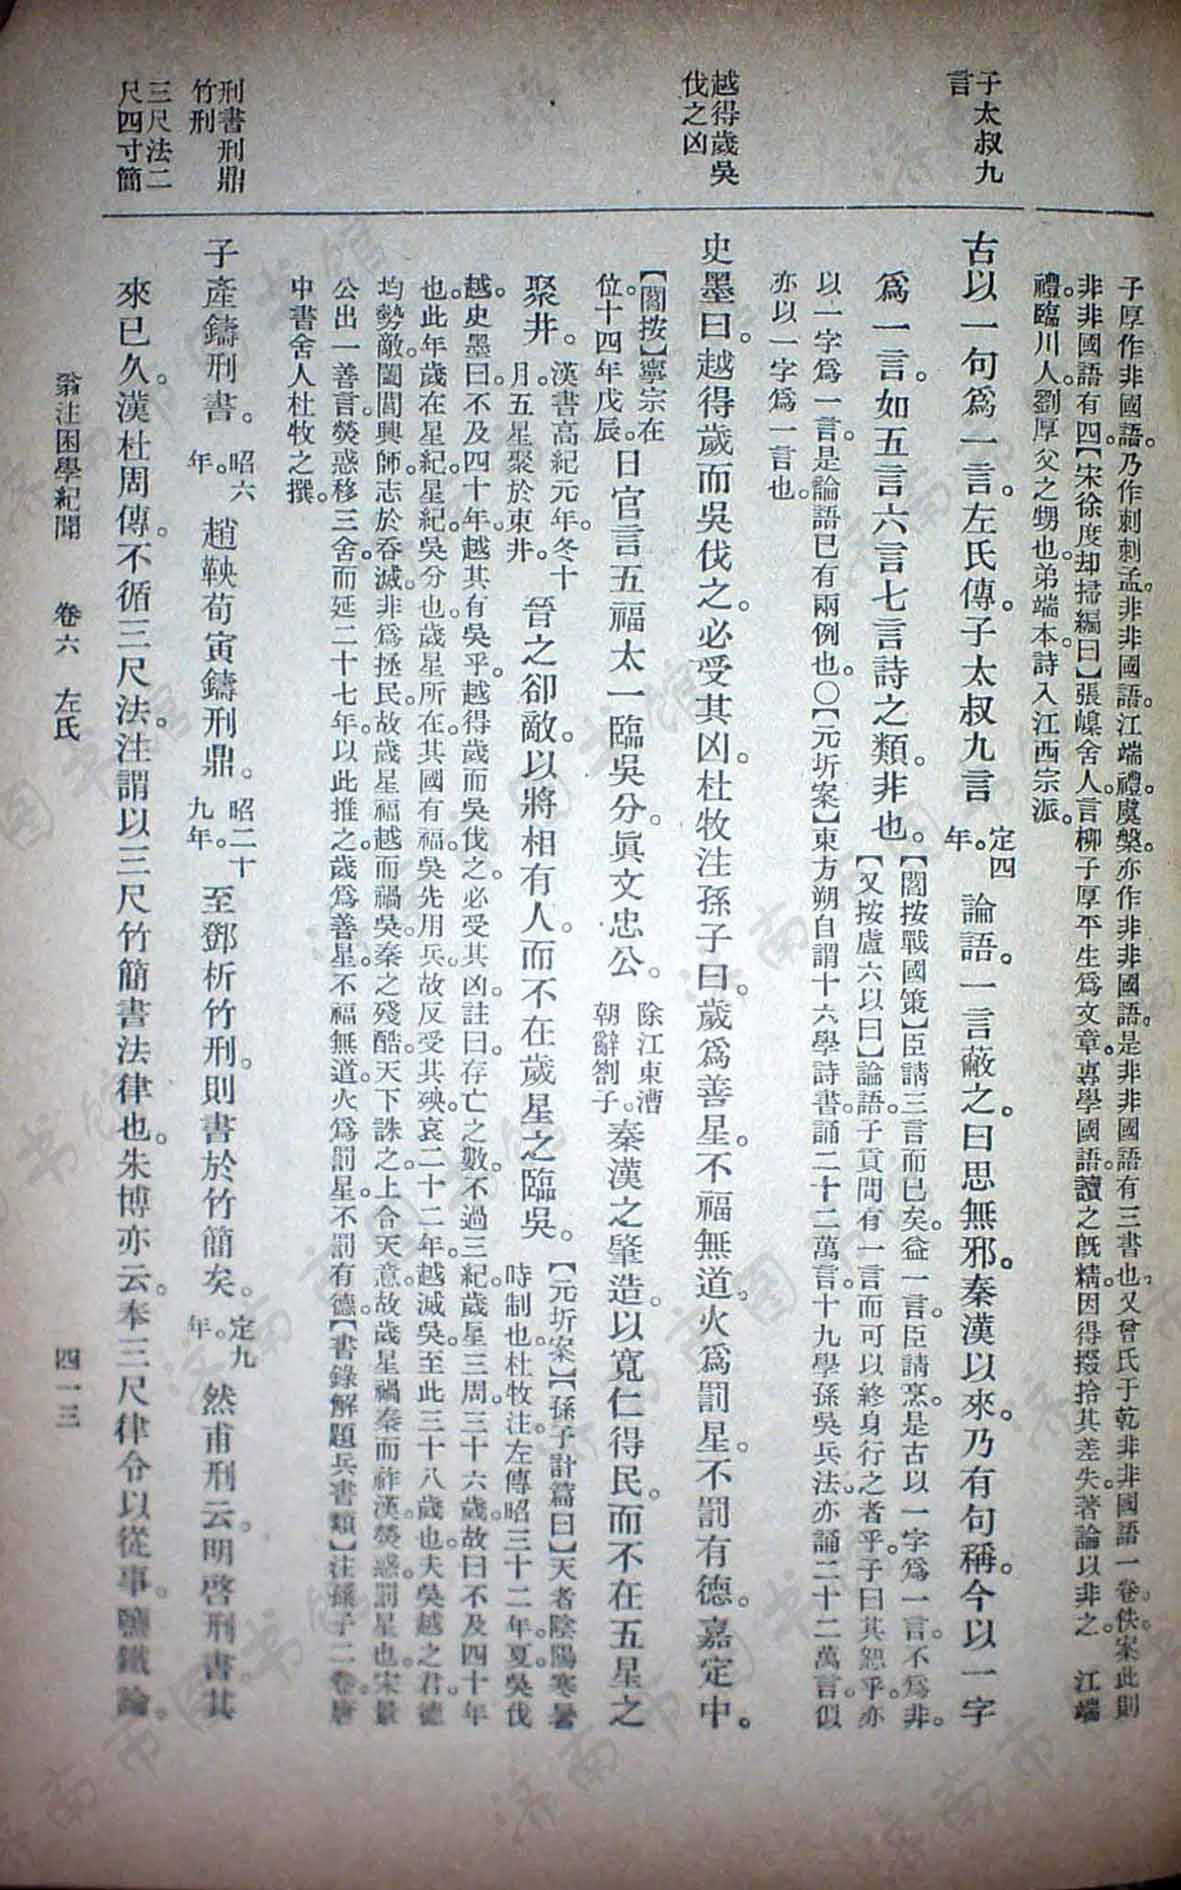 子厚作非國語。乃作刺刺孟。非非國語。江端禮。虞槃。亦作非非國語。是非非國語有三書也。又曾氏于乾非非國語一卷。佚。案此則
非非國語有四。【宋徐度却掃編曰】張嵲舍人。言柳子厚平生爲文章。專學國語。讀之旣精。因得掇拾其差失。著論以非之。江端
禮。臨川人。劉厚父之甥也。弟端本。詩入江西宗派。
子太叔九
言
古以一句爲一言。左氏傳。子太叔九言定四年。論語。一言蔽之。曰思無邪。秦漢以來。乃有句稱。今以一字
爲一言。如五言六言七言詩之類。非也。【閻按戰國策】臣請三言而已矣。益一言。臣請烹。是古以一字爲一言。不爲非。
【又按盧六以曰】論語。子貢問有一言而可以終身行之者乎。子曰其恕乎。亦
以一字爲一言。是論語已有兩例也。〇【元圻案】東方朔自謂十六學詩書。誦二十二萬言。十九學孫吳兵法。亦誦二十二萬言。似
亦以一字爲一言也。
越得歲吳
伐之凶
史墨曰。越得歲而吳伐之。必受其凶。杜牧注孫子曰。歲爲善星。不福無道。火爲罰星。不罰有德。嘉定中。
【閻按】寧宗在位十四年戊辰。日官言五福太一臨吳分。眞文忠公。除江東漕朝辭劄子。秦漢之肇造。以寬仁得民。而不在五星之
聚井。漢書高紀元年。冬十月。五星聚於東井。晉之卻敵。以將相有人。而不在歲星之臨吳。【元圻案】【孫子計篇曰】天者陰陽寒暑
時制也。杜牧注。左傳昭三十二年。夏。吳伐
越。史墨曰。不及四十年。越其有吳乎。越得歲而吳伐之。必受其凶。註曰。存亡之數。不過三紀。歲星三周。三十六歲。故曰不及四十年
也。此年歲在星紀。星紀。吳分也。歲星所在。其國有福。吳先用兵。故反受其殃。哀二十二年。越滅吳。至此三十八歲也。夫吳越之君。德
均勢敵。闔閭興師。志於吞滅。非爲拯民。故歲星福越而禍吳。秦之殘酷。天下誅之。上合天意。故歲星禍秦而祚漢。熒惑。罰星也。宋景
公出一善言。熒惑移三舍。而延二十七年。以此推之。歲爲善星。不福無道。火爲罰星。不罰有德。【書錄解題兵書類】注孫子二卷。唐
中書舍人杜牧之撰。
刑書刑鼎
竹刑
子產鑄刑書。昭六年。趙鞅荀寅鑄刑鼎。昭二十九年。至鄧析竹刑。則書於竹簡矣。定九年。然甫刑云。明啓刑書。其
三尺法二
尺四寸簡
來已久。漢杜周傳。不循三尺法。注謂以三尺竹簡書法律也。朱博亦云。奉三尺律令以從事。鹽鐵論。
翁注困學紀聞 卷六 左氏 四一三